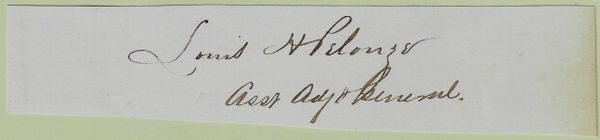 Louis H Pelouze
Asst Adjt General.